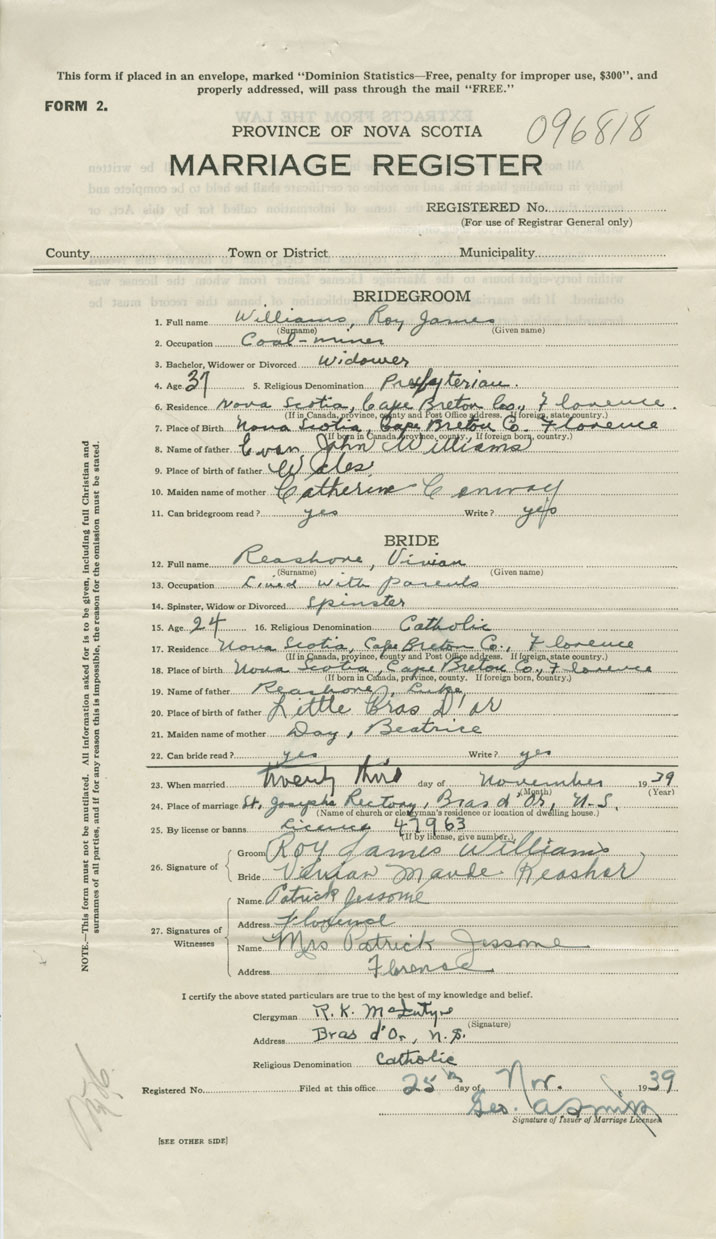 This form if placed in an envelope, marked "Dominion Statistics—Free, penalty for improper use, $300", and
properly addressed, will pass through the mail "FREE."
FORM 2.
PROVINCE OF NOVA SCOTIA
096818
MARRIAGE REGISTER
REGISTERED No.
(For use of Registrar General only)
County Town or District Municipality
BRIDEGROOM
1. Full name Williams, Roy James
(Surname) (Given name)
2. Occupation Coal-miner
3. Bachelor, Widower or Divorced Widower
4. Age 37 5. Religious Denomination Presbyterian.
6. Residence Nova Scotia, Cape Breton Co., Florence.
(If in Canada, province, county and Post Office address. If foreign, state country.)
7. Place of Birth Nova Scotia, Cape Breton Co. Florence
(If born in Canada, province, county. If foreign born, country.)
8. Name of father Evan John Williams
9. Place of birth of father Wales
10. Maiden name of mother Catherine Conway
11. Can bridegroom read? yes Write? yes
BRIDE
12. Full name Reashore, Vivian
(Surname) (Given name)
13. Occupation Lived with parents
14. Spinster, Widow or Divorced Spinster
15. Age 24 16. Religious Denomination Catholic
17. Residence Nova Scotia, Cape Breton Co., Florence
(If in Canada, province, county and Post Office address. If foreign, state country.)
18. Place of birth Nova Scotia, Cape Breton Co., Florence
(If born in Canada, province, county. If foreign born, country.)
19. Name of father Reashore, Luke
20. Place of birth of father Little Bras D'or
21. Maiden name of mother Day, Beatrice
22. Can bride read? yes Write? yes
23. When married twenty third day of November 1939
(Month) (Year)
24. Place of marriage St. Josephs Rectory, Bras d'Or, N.S.
(Name of church or clergyman's residence or location of dwelling house.)
25. By license or banns License 47963
(If by license, give number.)
26. Signature of
Groom Roy James Williams
Bride Vivian Maude Reashor
27. Signatures of Witnesses
Name Patrick Jessome
Address Florence
Name Mrs Patrick Jessome
Address Florence
I certify the above stated particulars are true to the best of my knowledge and belief.
Clergyman R. K. McIntyre
(Signature)
Address Bras d'Or, N.S.
Religious Denomination Catholic
Registered No. Filed at this office 25th day of Nov. 1939
Geo.
Signature of Issuer of Marriage Licenses
[SEE OTHER SIDE]
NOTE.—This form must not be mutilated. All information asked for is to be given, including full Christian and
surnames of all parties, and if for any reason this is impossible, the reason for the omission must be stated.